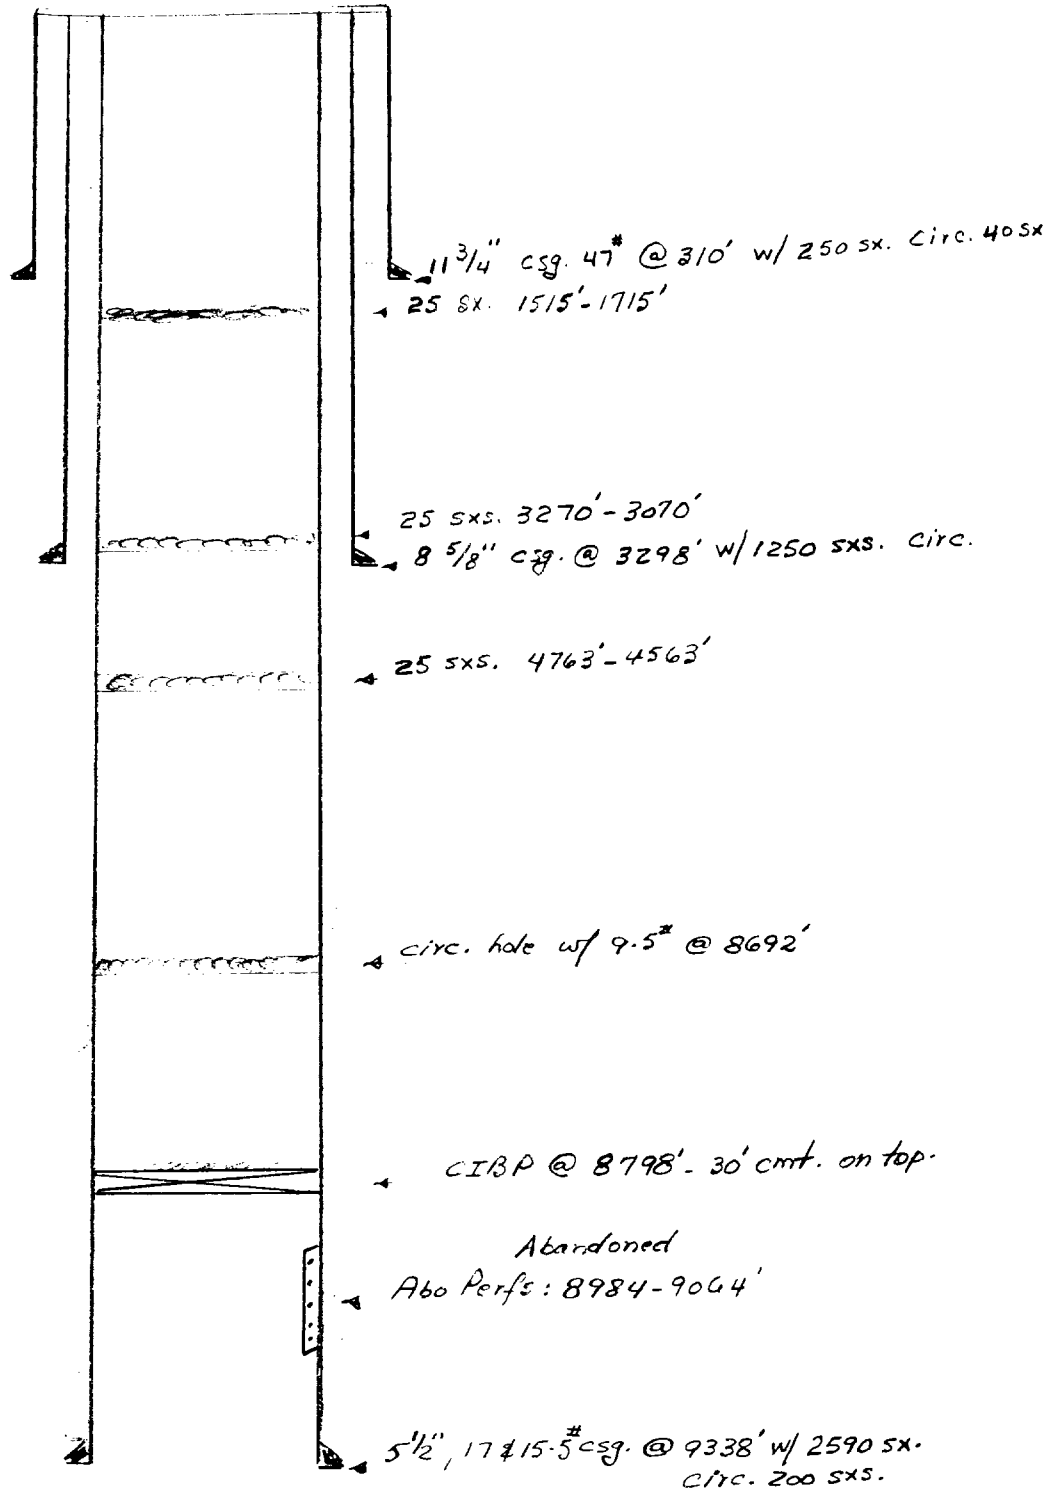 11 3/4" csg. 47# @ 310' w/ 250 sx. Circ. 40 sx
25 sx. 1515'-1715'
25 sxs. 3270'-3070'
8 5/8" csg. @ 3298' w/1250 sxs. Circ.
25 sxs. 4763'-4563'
circ. hole w/ 9.5# @ 8692'
CIBP @ 8798'- 30' cmt. on top.
Abandoned
Abo Perfs: 8984-9064'
5 1/2", 17 & 15.5# csg. @ 9338' w/ 2590 sx.
circ. 200 sxs.